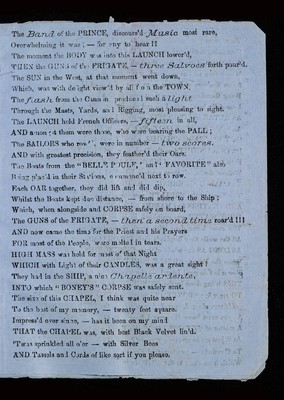 The Band of the PRINCE, discours'd Music most rare,
Overwhelming it was; — for any to hear!!
The moment the BODY was into this LAUNCH lower'd,
THEN the GUNS of the FRIGATE, — three Salvoes forth pour'd.
The SUN in the West, at that moment went down,
Which, was with delight view'd by all from the TOWN,
The flash from the Guns in produced such a light
Through the Masts, Yards, and Rigging, most pleasing to sight.
The LAUNCH held French Officers, — fifteen in all,
AND amongst them were those, who were bearing the PALL;
The SAILORS who row'd, were in number — two scores,
AND with greatest precision, they feather'd their Oars.
Two Boats from the "BELLE POULE," and "FAVORITE" also
Being plac'd in their Stations, commenc'd next to row.
Each OAR together, they did lift and did dip,
Whilst the Boats kept due distance, — from shore to the Ship;
Which, when alongside and CORPSE safely on board,
The GUNS of the FRIGATE, — then a second time roar'd!!!
AND now came the time for the Priest and his Prayers
FOR most of the People, were melted in tears.
HIGH MASS was held for most of that Night
WHICH with Light of their CANDLES, was a great sight!
They had in the SHIP, a nice Chapelle ardente,
INTO which "BONEY'S" CORPSE was safely sent.
The size of this CHAPEL, I think was quite near
To the best of my memory, — twenty feet square.
Impress'd ever since, — has it been on my mind
THAT the CHAPEL was, with best Black Velvet lin'd.
'Twas sprinkled all o'er — with Silver Bees
AND Tassels and Cords of like sort if you please.